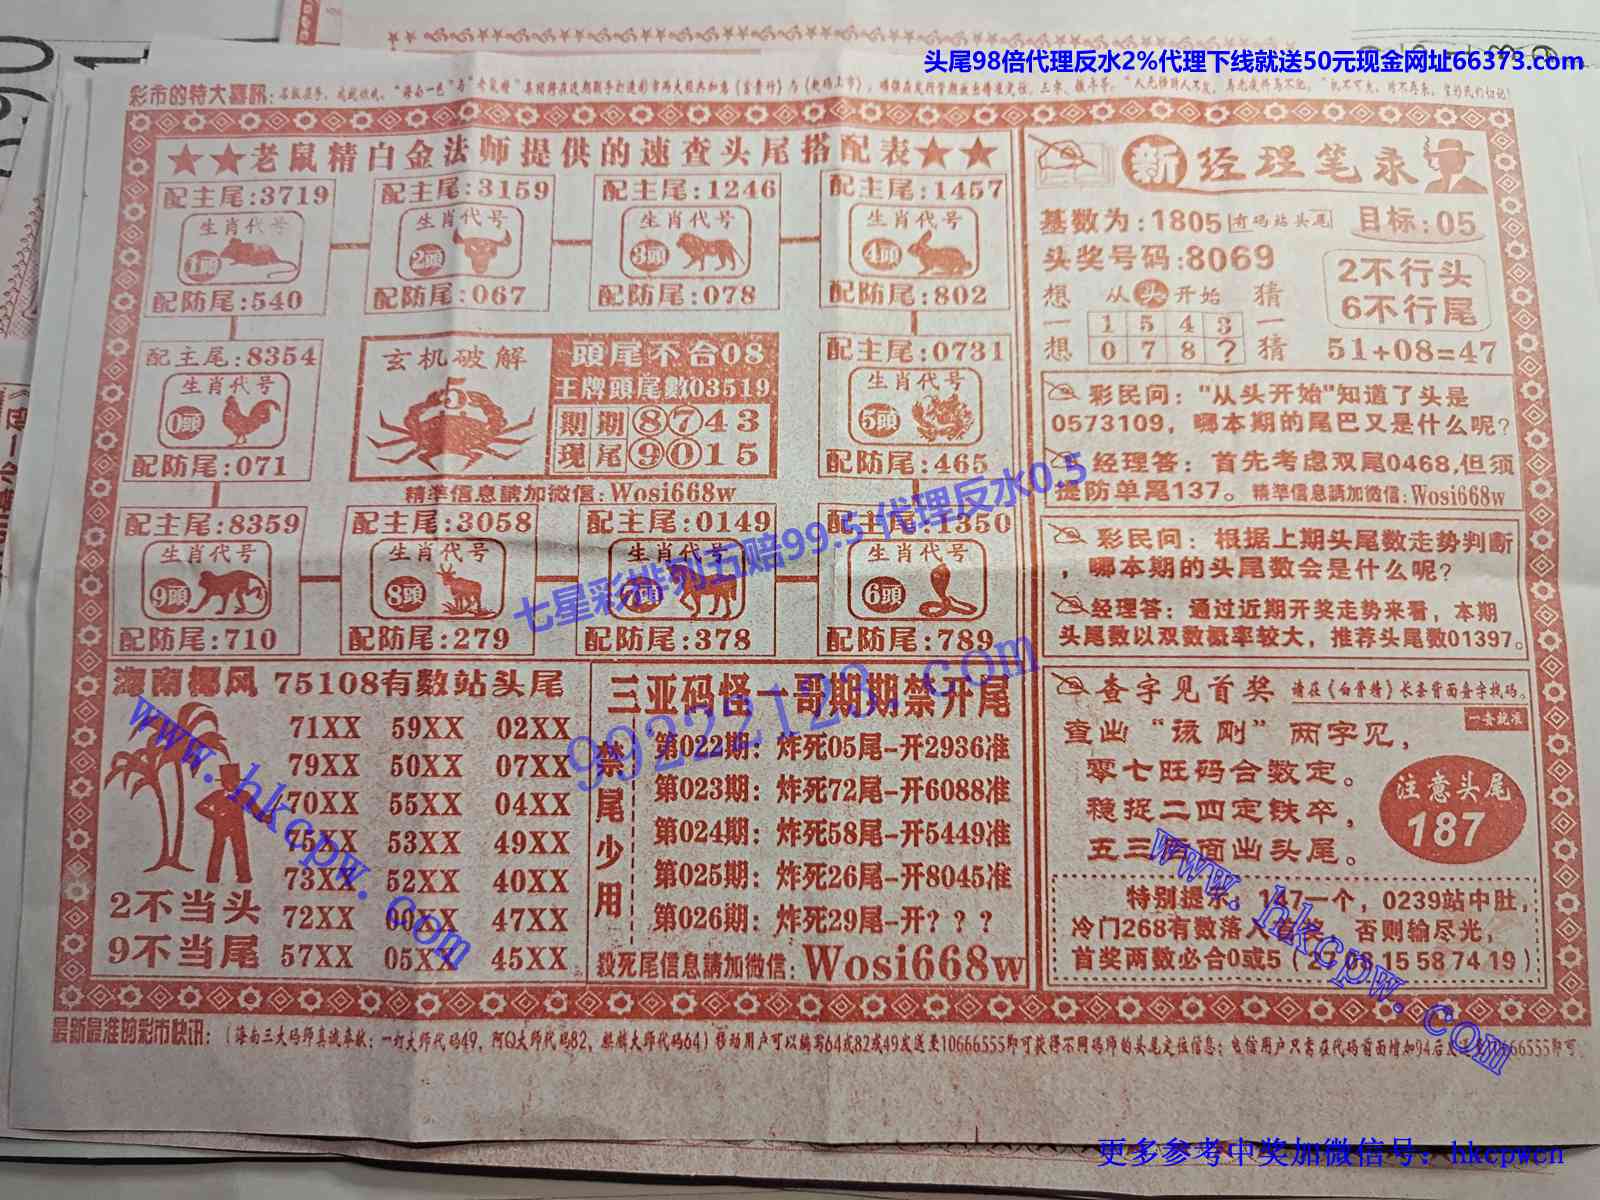 头尾98倍代理反水2%代理下线就送50元现金网址66373.com
彩市的特大喜訊:
★★老鼠精白金法师提供的速查头尾搭配表★★
配主尾:3719
生肖代号
1頭
配防尾:540
配主尾:3159
生肖代号
2頭
配防尾:067
配主尾:1246
生肖代号
3頭
配防尾:078
配主尾:1457
生肖代号
4頭
配防尾:802
配主尾:8354
生肖代号
0頭
配防尾:071
玄机破解
5
頭尾不合08
王牌頭尾數03519
期期⑧⑦43
现尾⑨⓪15
精準信息請加微信:Wosi668w
配主尾:0731
生肖代号
5頭
配防尾:465
配主尾:8359
生肖代号
9頭
配防尾:710
配主尾:3058
生肖代号
8頭
配防尾:279
配主尾:0149
生肖代号
配防尾:378
配主尾:1350
生肖代号
6頭
配防尾:789
七星彩排列五赔99.5 代理反水0.5
99222123.com
海南椰风 75108有数站头尾
71XX 59XX 02XX
79XX 50XX 07XX
70XX 55XX 04XX
75XX 53XX 49XX
73XX 52XX 40XX
72XX 00XX 47XX
57XX 05XX 45XX
2不当头
9不当尾
www.hkcpw.com
三亚码怪一哥期期禁开尾
禁尾少用
第022期: 炸死05尾-开2936准
第023期: 炸死72尾-开6088准
第024期: 炸死58尾-开5449准
第025期: 炸死26尾-开8045准
第026期: 炸死29尾-开? ? ?
殺死尾信息請加微信:Wosi668w
新 经理笔录
基数为:1805 有码站头尾 目标:05
头奖号码:8069
想一想
从头开始
1 5 4 3
0 7 8 ?
猜一猜
2不行头
6不行尾
51+08=47
彩民问: "从头开始"知道了头是
0573109, 哪本期的尾巴又是什么呢?
经理答: 首先考虑双尾0468,但须
提防单尾137。精準信息請加微信:Wosi668w
彩民问: 根据上期头尾数走势判断
, 哪本期的头尾数会是什么呢?
经理答: 通过近期开奖走势来看, 本期
头尾数以双数概率较大, 推荐头尾数01397。
查字见首奖 请在《白骨精》长条背面查字找码。
一查就准
查出 "该刚" 两字见,
零七旺码合数定。
稳捉二四定铁卒,
五三四面出头尾。
注意头尾
187
特别提示: 147一个, 0239站中肚,
冷门268有数落入首奖, 否则输尽光,
首奖两数必合0或5
www.hkcpw.com
最新最准的彩市快讯: (海南三大码师真诚奉献: 一灯大师代码49, 阿Q大师代码82, 麒麟大师代码64) 移动用户可以编写64或82或49发送至10666555即可获得不同码师的头尾定位信息;
更多参考中奖加微信号: hkcpwcn